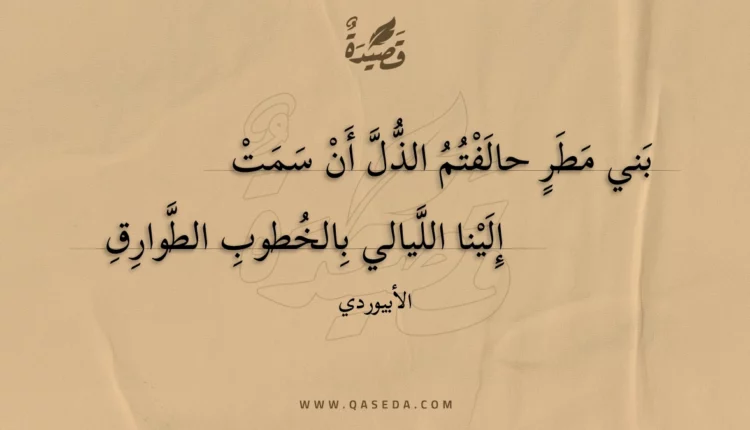 قَصِيْدَةٌ
بَني مَطَرٍ حالَفْتُمُ الذُّلَّ أَنْ سَمَتْ
إِلَيْنا اللَّيالي بِالخُطوبِ الطَّوارِقِ
الأبيوردي
WWW.QASEDA.COM